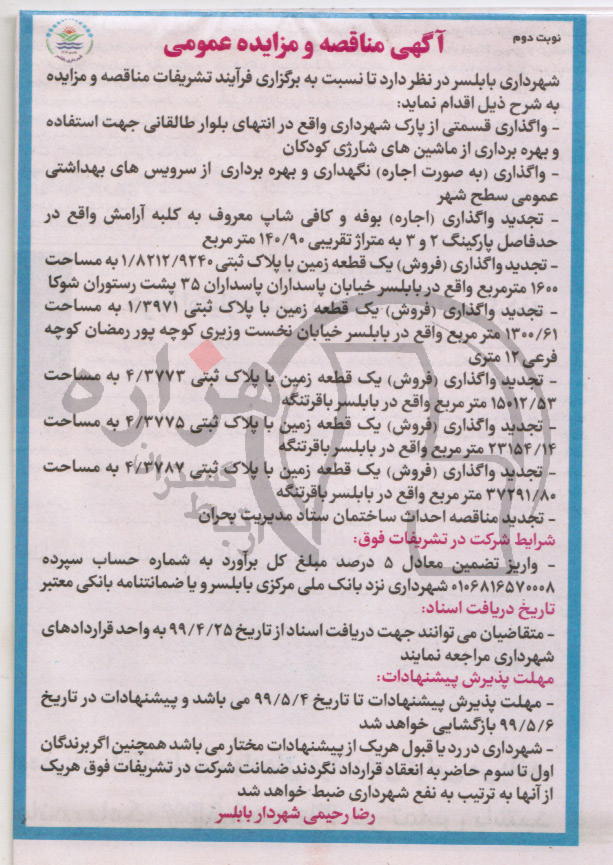 نوبت دوم
آگهی مناقصه و مزایده عمومی
شهرداری بابلسر در نظر دارد تا نسبت به برگزاری فرآیند تشریفات مناقصه و مزایده
به شرح ذیل اقدام نماید:
- واگذاری قسمتی از پارک شهرداری واقع در انتهای بلوار طالقانی جهت استفاده
و بهره برداری از ماشین های شارژی کودکان
- واگذاری (به صورت اجاره) نگهداری و بهره برداری از سرویس های بهداشتی
عمومی سطح شهر
- تجدید واگذاری (اجاره) بوفه و کافی شاپ معروف به کلبه آرامش واقع در
حدفاصل پارکینگ ۲ و ۳ به متراژ تقریبی ۱۴۰/۹۰ متر مربع
- تجدید واگذاری (فروش) یک قطعه زمین با پلاک ثبتی ۱/۸۲۱۲/۹۲۴۰ به مساحت
۱۶۰۰ مترمربع واقع در بابلسر خیابان پاسداران پاسداران ۳۵ پشت رستوران شوکا
- تجدید واگذاری (فروش) یک قطعه زمین با پلاک ثبتی ۱/۳۹۷۱ به مساحت
۱۳۰۰/۶۱ متر مربع واقع در بابلسر خیابان نخست وزیری کوچه پور رمضان کوچه
فرعی ۱۲ متری
- تجدید واگذاری (فروش) یک قطعه زمین با پلاک ثبتی ۴/۳۷۷۳ به مساحت
۱۵۰۱۲/۵۳ متر مربع واقع در بابلسر باقرتنگه
- تجدید واگذاری (فروش) یک قطعه زمین با پلاک ثبتی ۴/۳۷۷۵ به مساحت
۲۳۱۵۴/۱۴ متر مربع واقع در بابلسر باقرتنگه
- تجدید واگذاری (فروش) یک قطعه زمین با پلاک ثبتی ۴/۳۷۸۷ به مساحت
۳۷۲۹۱/۸۰ متر مربع واقع در بابلسر باقرتنگه
- تجدید مناقصه احداث ساختمان ستاد مدیریت بحران
شرایط شرکت در تشریفات فوق:
- واریز تضمین معادل ۵ درصد مبلغ کل برآورد به شماره حساب سپرده
۰۱۰۶۸۱۶۵۷۰۰۰۸ شهرداری نزد بانک ملی مرکزی بابلسر و یا ضمانتنامه بانکی معتبر
تاریخ دریافت اسناد:
- متقاضیان می توانند جهت دریافت اسناد از تاریخ ۹۹/۴/۲۵ به واحد قراردادهای
شهرداری مراجعه نمایند
مهلت پذیرش پیشنهادات:
- مهلت پذیرش پیشنهادات تا تاریخ ۹۹/۵/۴ می باشد و پیشنهادات در تاریخ
۹۹/۵/۶ بازگشایی خواهد شد
- شهرداری در رد یا قبول هریک از پیشنهادات مختار می باشد همچنین اگر برندگان
اول تا سوم حاضر به انعقاد قرارداد نگردند ضمانت شرکت در تشریفات فوق هریک
از آنها به ترتیب به نفع شهرداری ضبط خواهد شد
رضا رحیمی شهردار بابلسر
هزاره